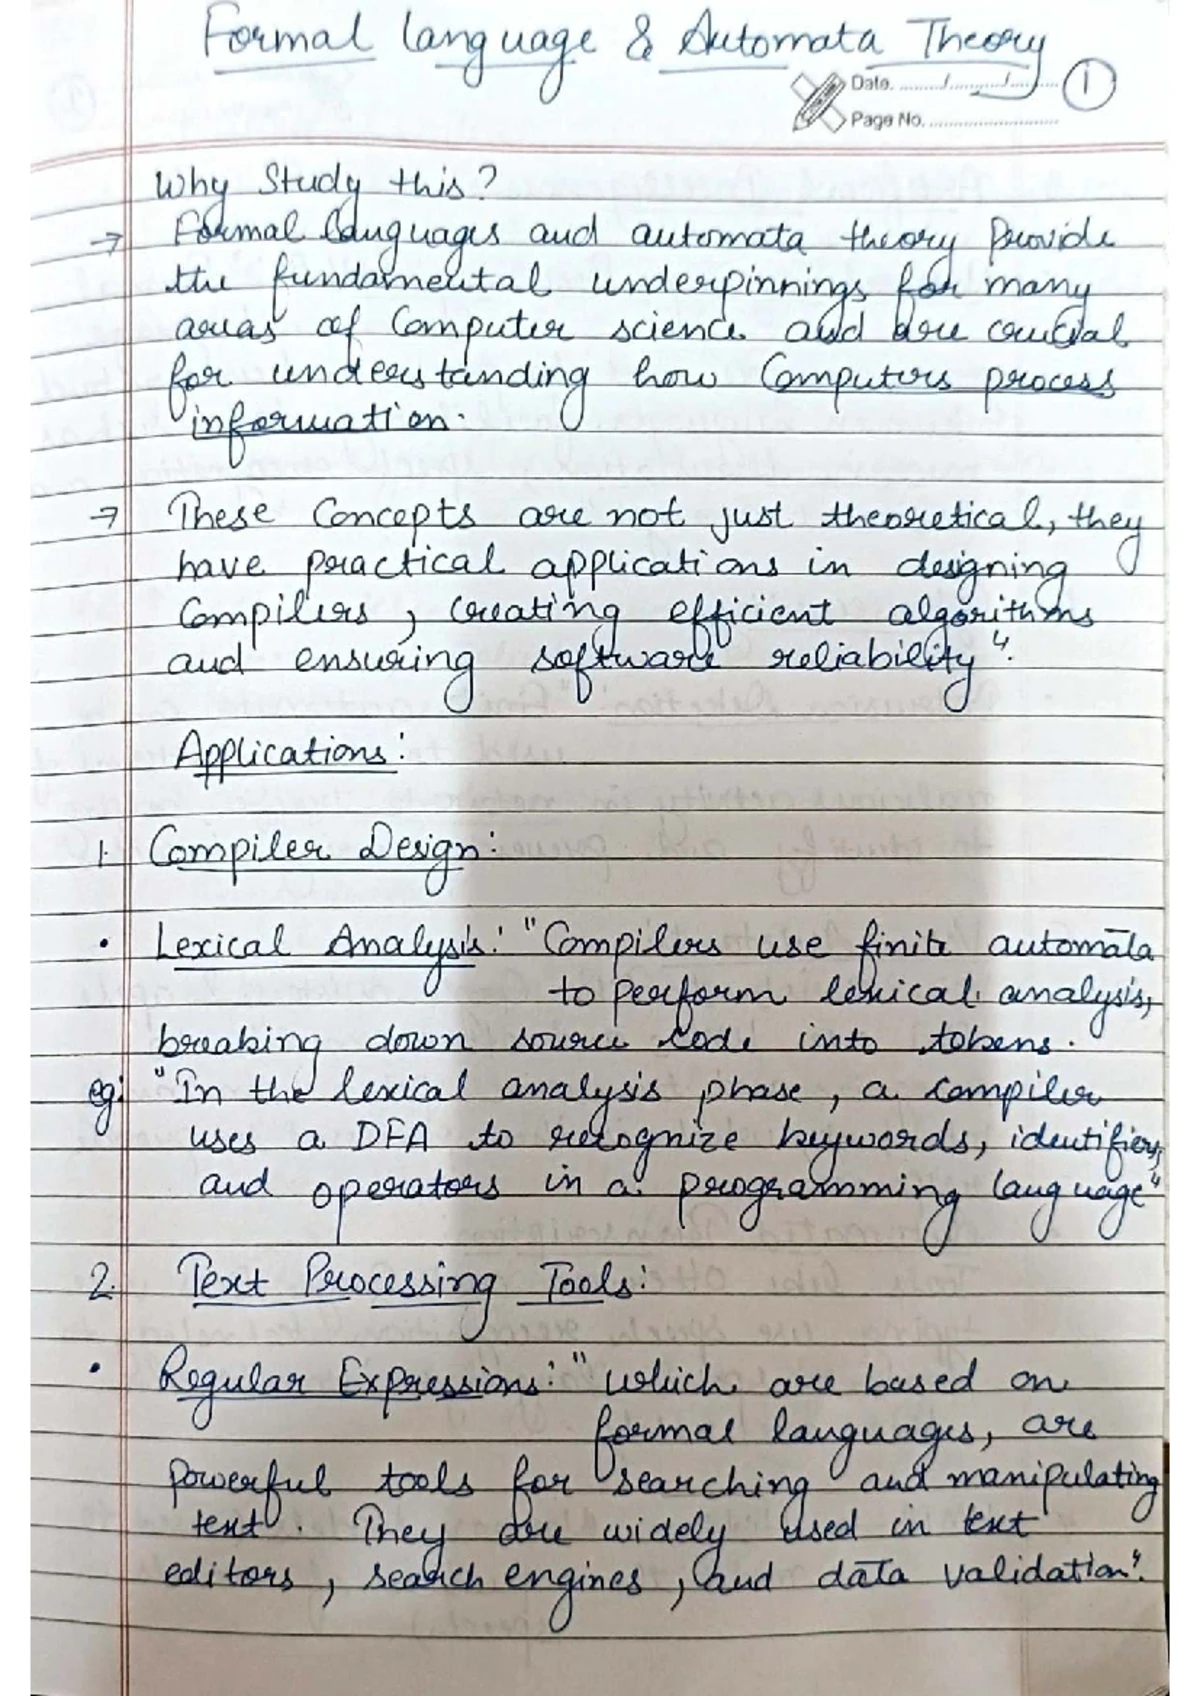 Formal language & Automata Theory
Date. ......./......./.......
1
Page No. ..............................
Why Study this?
→ Formal languages and automata theory Provide
the fundamental underpinnings for many
areas of Computer science and are crucial
for understanding how Computers process
information.
→ These Concepts are not just theoretical, they
have practical applications in designing
Compilers, Creating efficient algorithms
and ensuring software reliability".
Applications:
1. Compiler Design:
• Lexical Analysis: "Compilers use finite automata
to perform lexical analysis,
breaking down source code into tokens.
eg: "In the lexical analysis phase, a compiler
uses a DFA to recognize keywords, identifiers,
and operators in a programming language"
2. Text Processing Tools:
• Regular Expressions: "which are based on
formal languages, are
powerful tools for searching and manipulating
text. They are widely used in text
editors, search engines, and data validation".